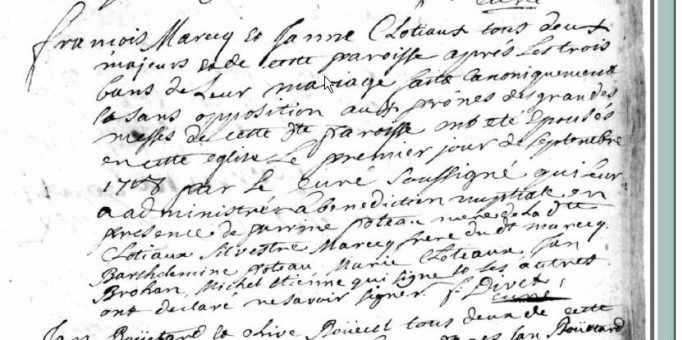 curé
francois Marcq et Janne Clotiaux tous deux
majeurs et de cette paroisse apres les trois
bans de Leur mariage faits Canoniquement
sans opposition aux prônes des grandes
messes de cette dte paroisse ont été Epousés
en cette eglise Le premier jour de septembre
1708 par Le curé soussigné qui leur
a administré la benediction nuptiale en
presence de poteau mere de la dte
Clotiaux Silvestre Marcq frere du dt marcq
Barthelemine poteau, Marie Clotiaux, Jan
Brohan, Michel Etienne qui signe et les autres
ont declaré ne savoir signer.
curé
Jan et olive tous deux de cette
Jan